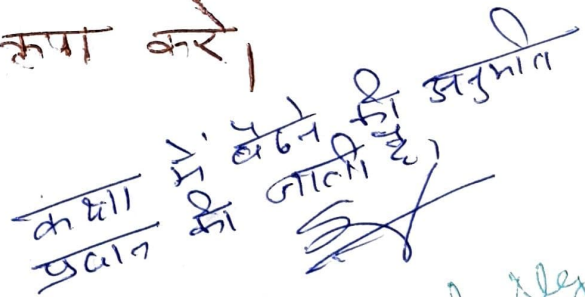 कृपा करे।
कक्षा में बैठने की अनुमति
प्रदान की जाती है।